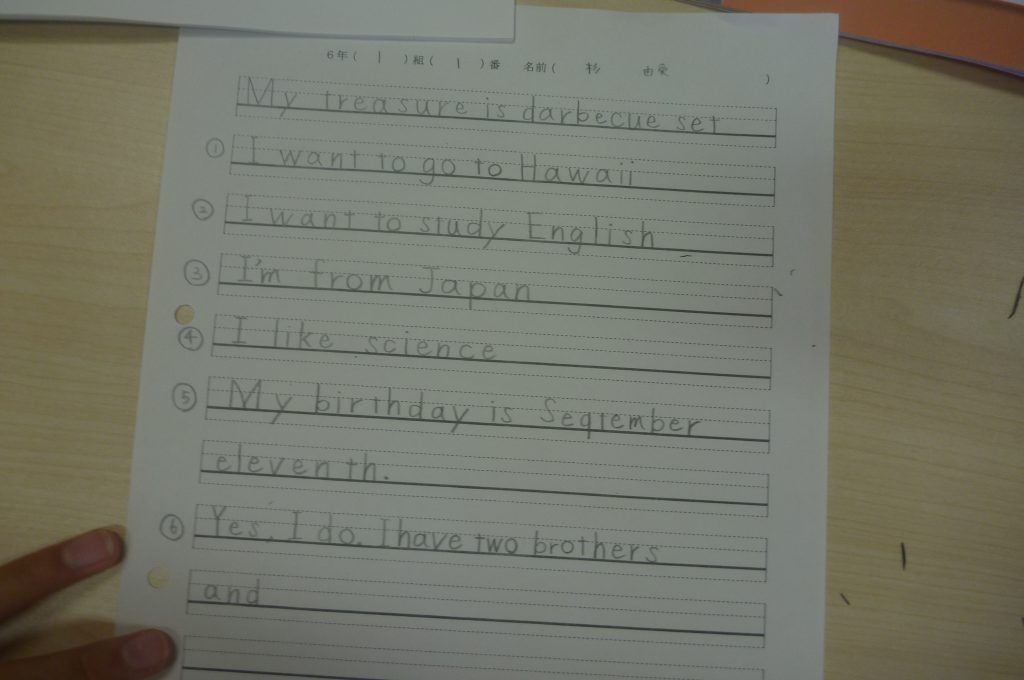 6年( 1 )組( 1 )番 名前( 杉 由愛 )
My treasure is darbecue set
① I want to go to Hawaii
② I want to study English
③ I'm from Japan
④ I like science
⑤ My birthday is Seqtember
eleventh.
⑥ Yes, I do. I have two brothers
and